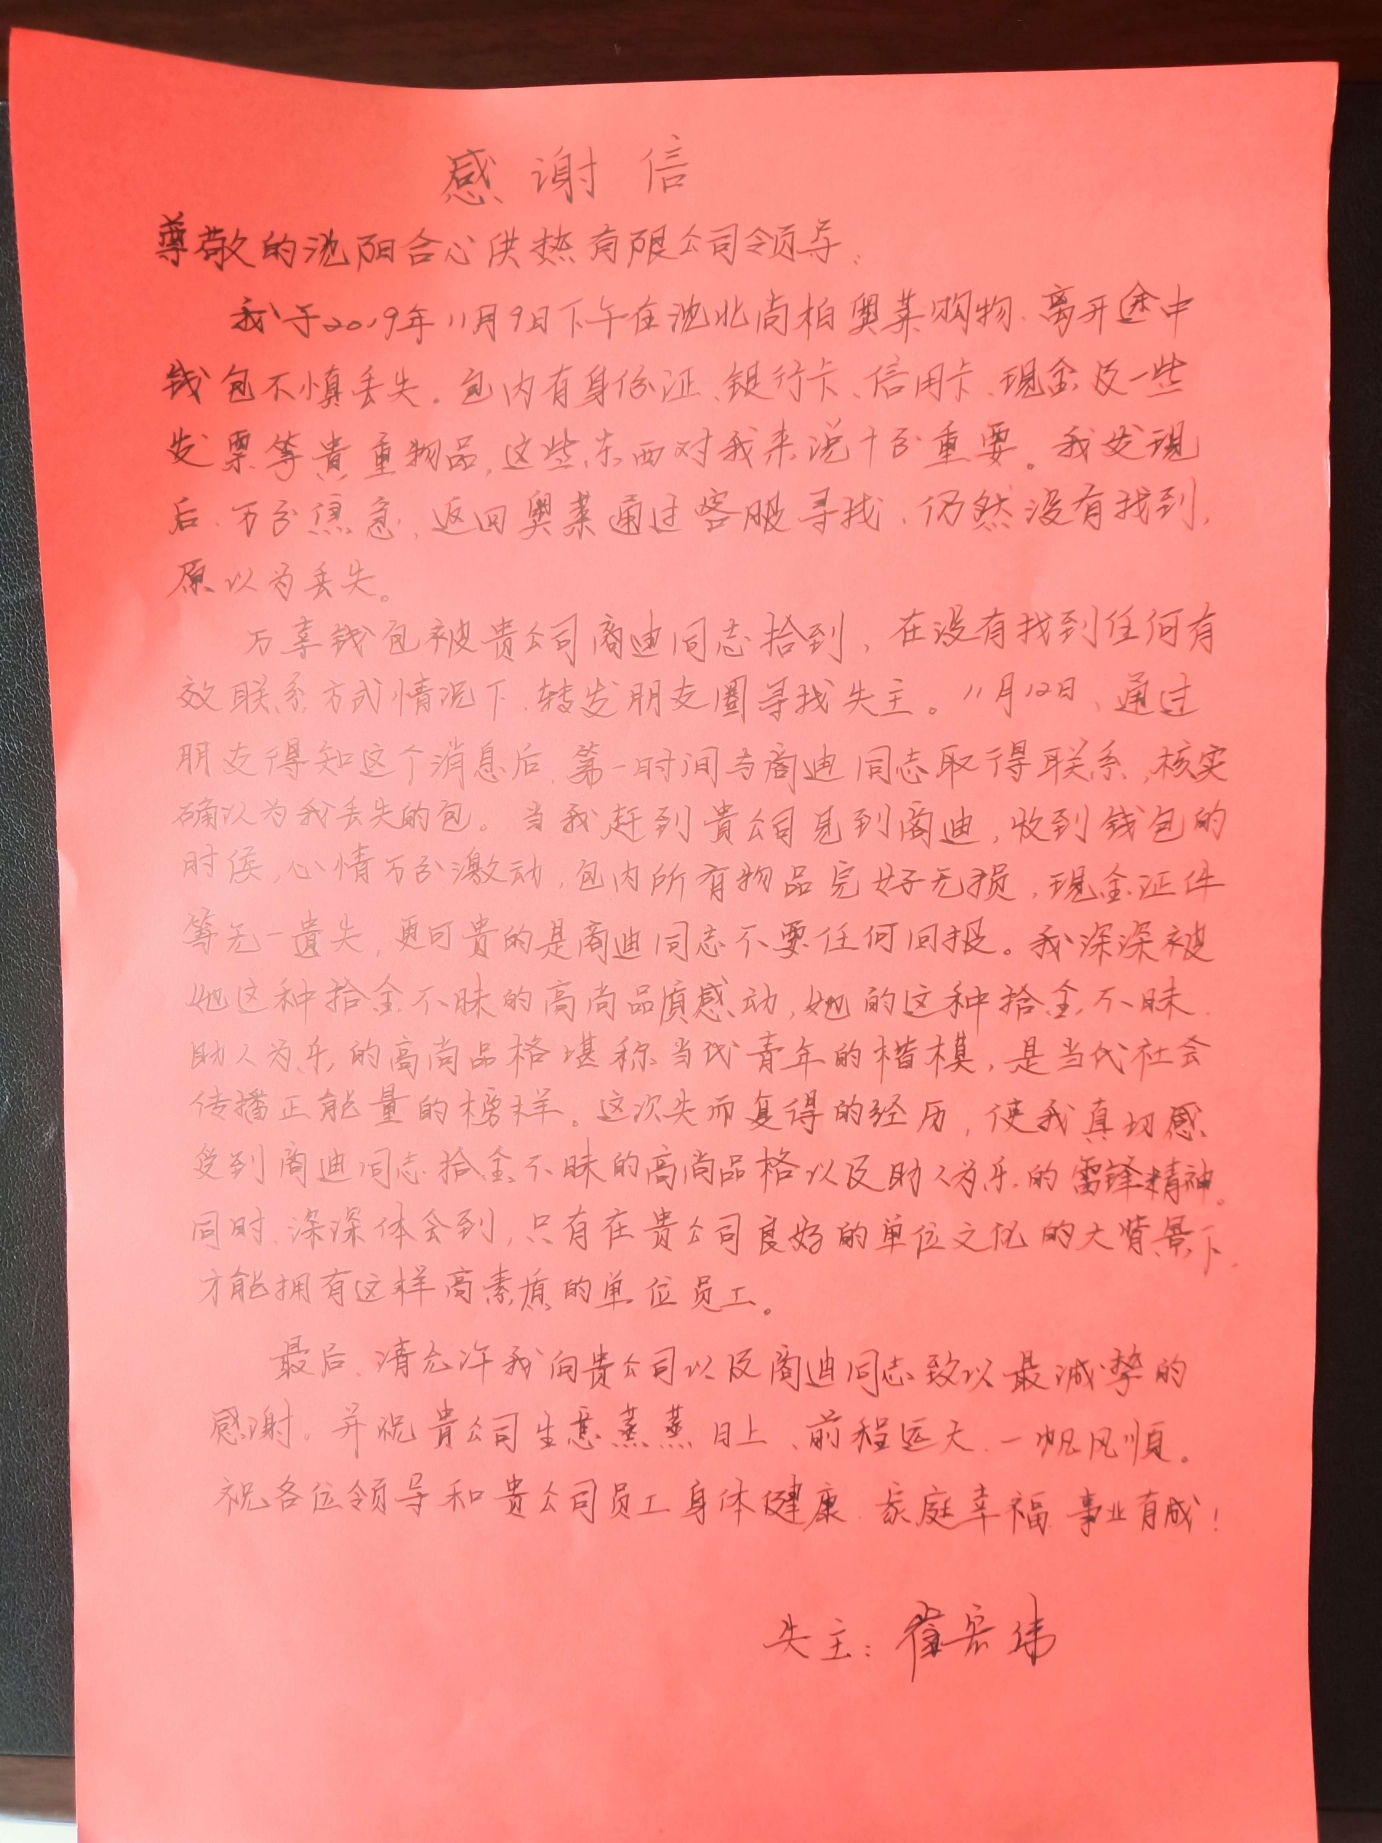 感谢信
尊敬的沈阳合心供热有限公司领导：
我于2019年11月9日下午在沈北尚柏奥莱购物、离开途中
钱包不慎丢失。包内有身份证、银行卡、信用卡、现金及一些
发票等贵重物品，这些东西对我来说十分重要。我发现
后、万分焦急，返回奥莱通过客服寻找、仍然没有找到，
原以为丢失。
万幸钱包被贵公司商迪同志拾到，在没有找到任何有
效联系方式情况下、转发朋友圈寻找失主。11月12日、通过
朋友得知这个消息后、第一时间与商迪同志取得联系，核实
确认为我丢失的包。当我赶到贵公司见到商迪，收到钱包的
时侯，心情万分激动，包内所有物品完好无损，现金证件
等无一遗失，更可贵的是商迪同志不要任何回报。我深深被
她这种拾金不昧的高尚品质感动，她的这种拾金不昧、
助人为乐的高尚品格堪称当代青年的楷模，是当代社会
传播正能量的榜样。这次失而复得的经历，使我真切感
受到商迪同志拾金不昧的高尚品格以及助人为乐的雷锋精神。
同时、深深体会到，只有在贵公司良好的单位文化的大背景下、
才能拥有这样高素质的单位员工。
最后、请允许我向贵公司以及商迪同志致以最诚挚的
感谢，并祝贵公司生意蒸蒸日上、前程远大、一帆风顺。
祝各位领导和贵公司员工身体健康、家庭幸福、事业有成！
失主：崔宏伟